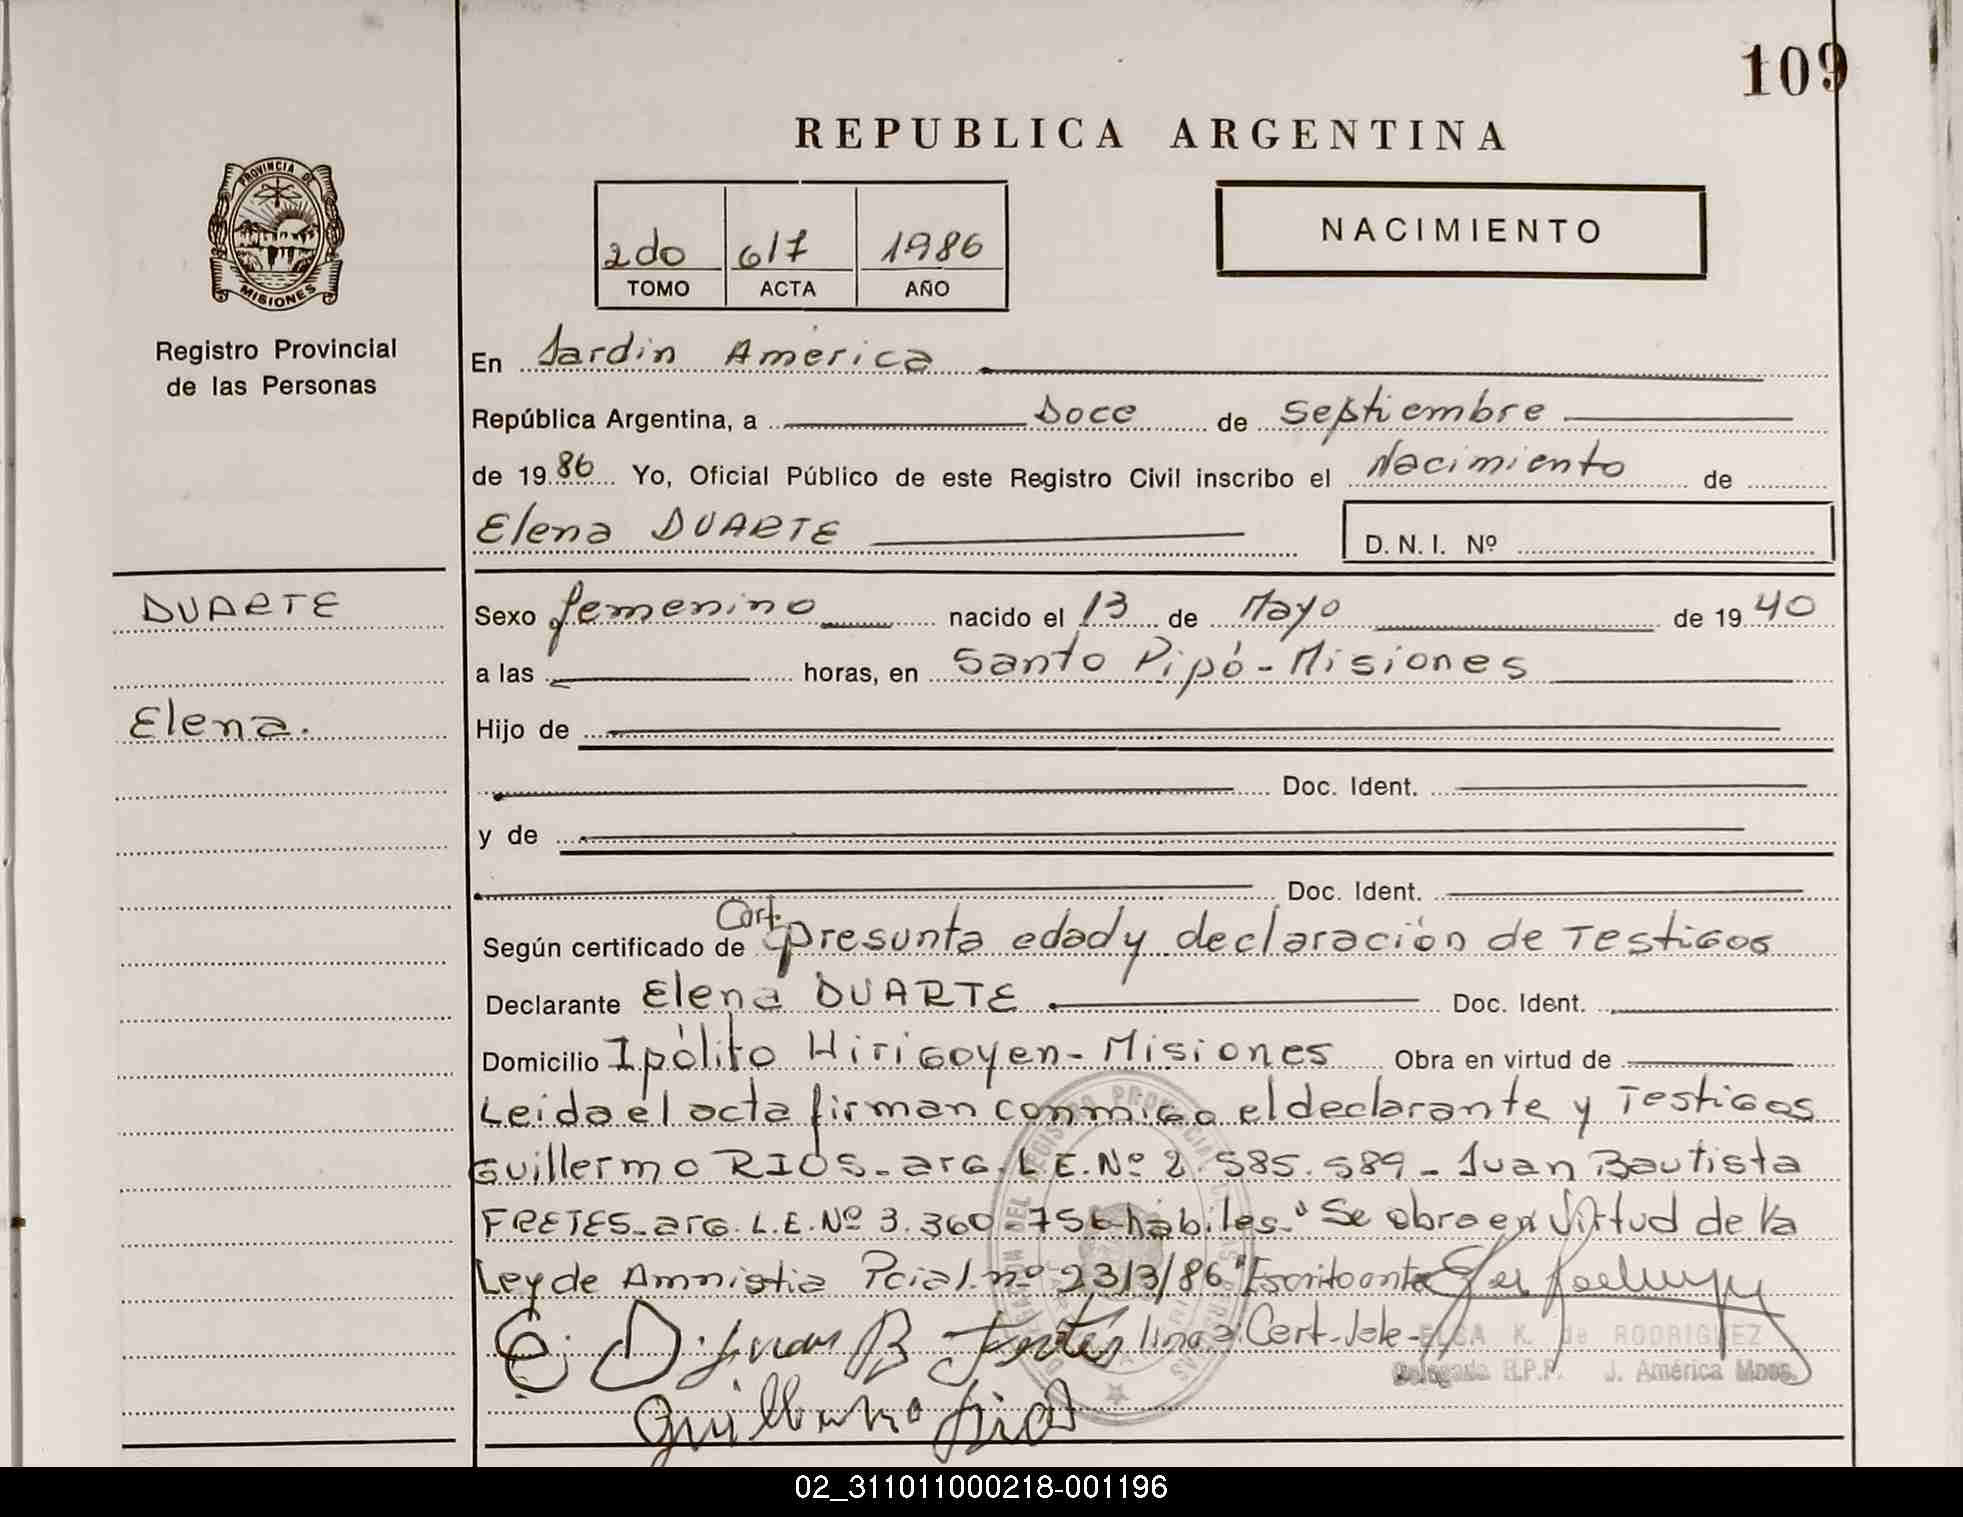 109
REPUBLICA ARGENTINA
PROVINCIA DE
MISIONES
Registro Provincial
de las Personas
2do 617 1986
TOMO ACTA AÑO
NACIMIENTO
En Jardin América
República Argentina, a Doce de Septiembre
de 1986 Yo, Oficial Público de este Registro Civil inscribo el Nacimiento de
Elena DUARTE
D. N. I. Nº
DUARTE
Elena.
Sexo femenino nacido el 13 de Mayo de 1940
a las horas, en Santo Pipó - Misiones
Hijo de
Doc. Ident.
y de
Doc. Ident.
Cert.
Según certificado de presunta edad y declaración de Testigos
Declarante Elena DUARTE Doc. Ident.
Domicilio Ipólito Hirigoyen - Misiones Obra en virtud de
Leida el acta firman conmigo el declarante y Testigos
Guillermo RIOS - arg. L.E. Nº 2.585.589 - Juan Bautista
FRETES - arg. L.E. Nº 3.360.756 habiles. "Se obra en Virtud de la
Ley de Amnistia Pcial. nº 2313/86" Escrito
E. D. Juan B Fretes linea: Cert. Vale -
ELSA K. de RODRIGUEZ
Delegada R.P.P. J. América Mnes.
Guillermo Rios
02_311011000218-001196